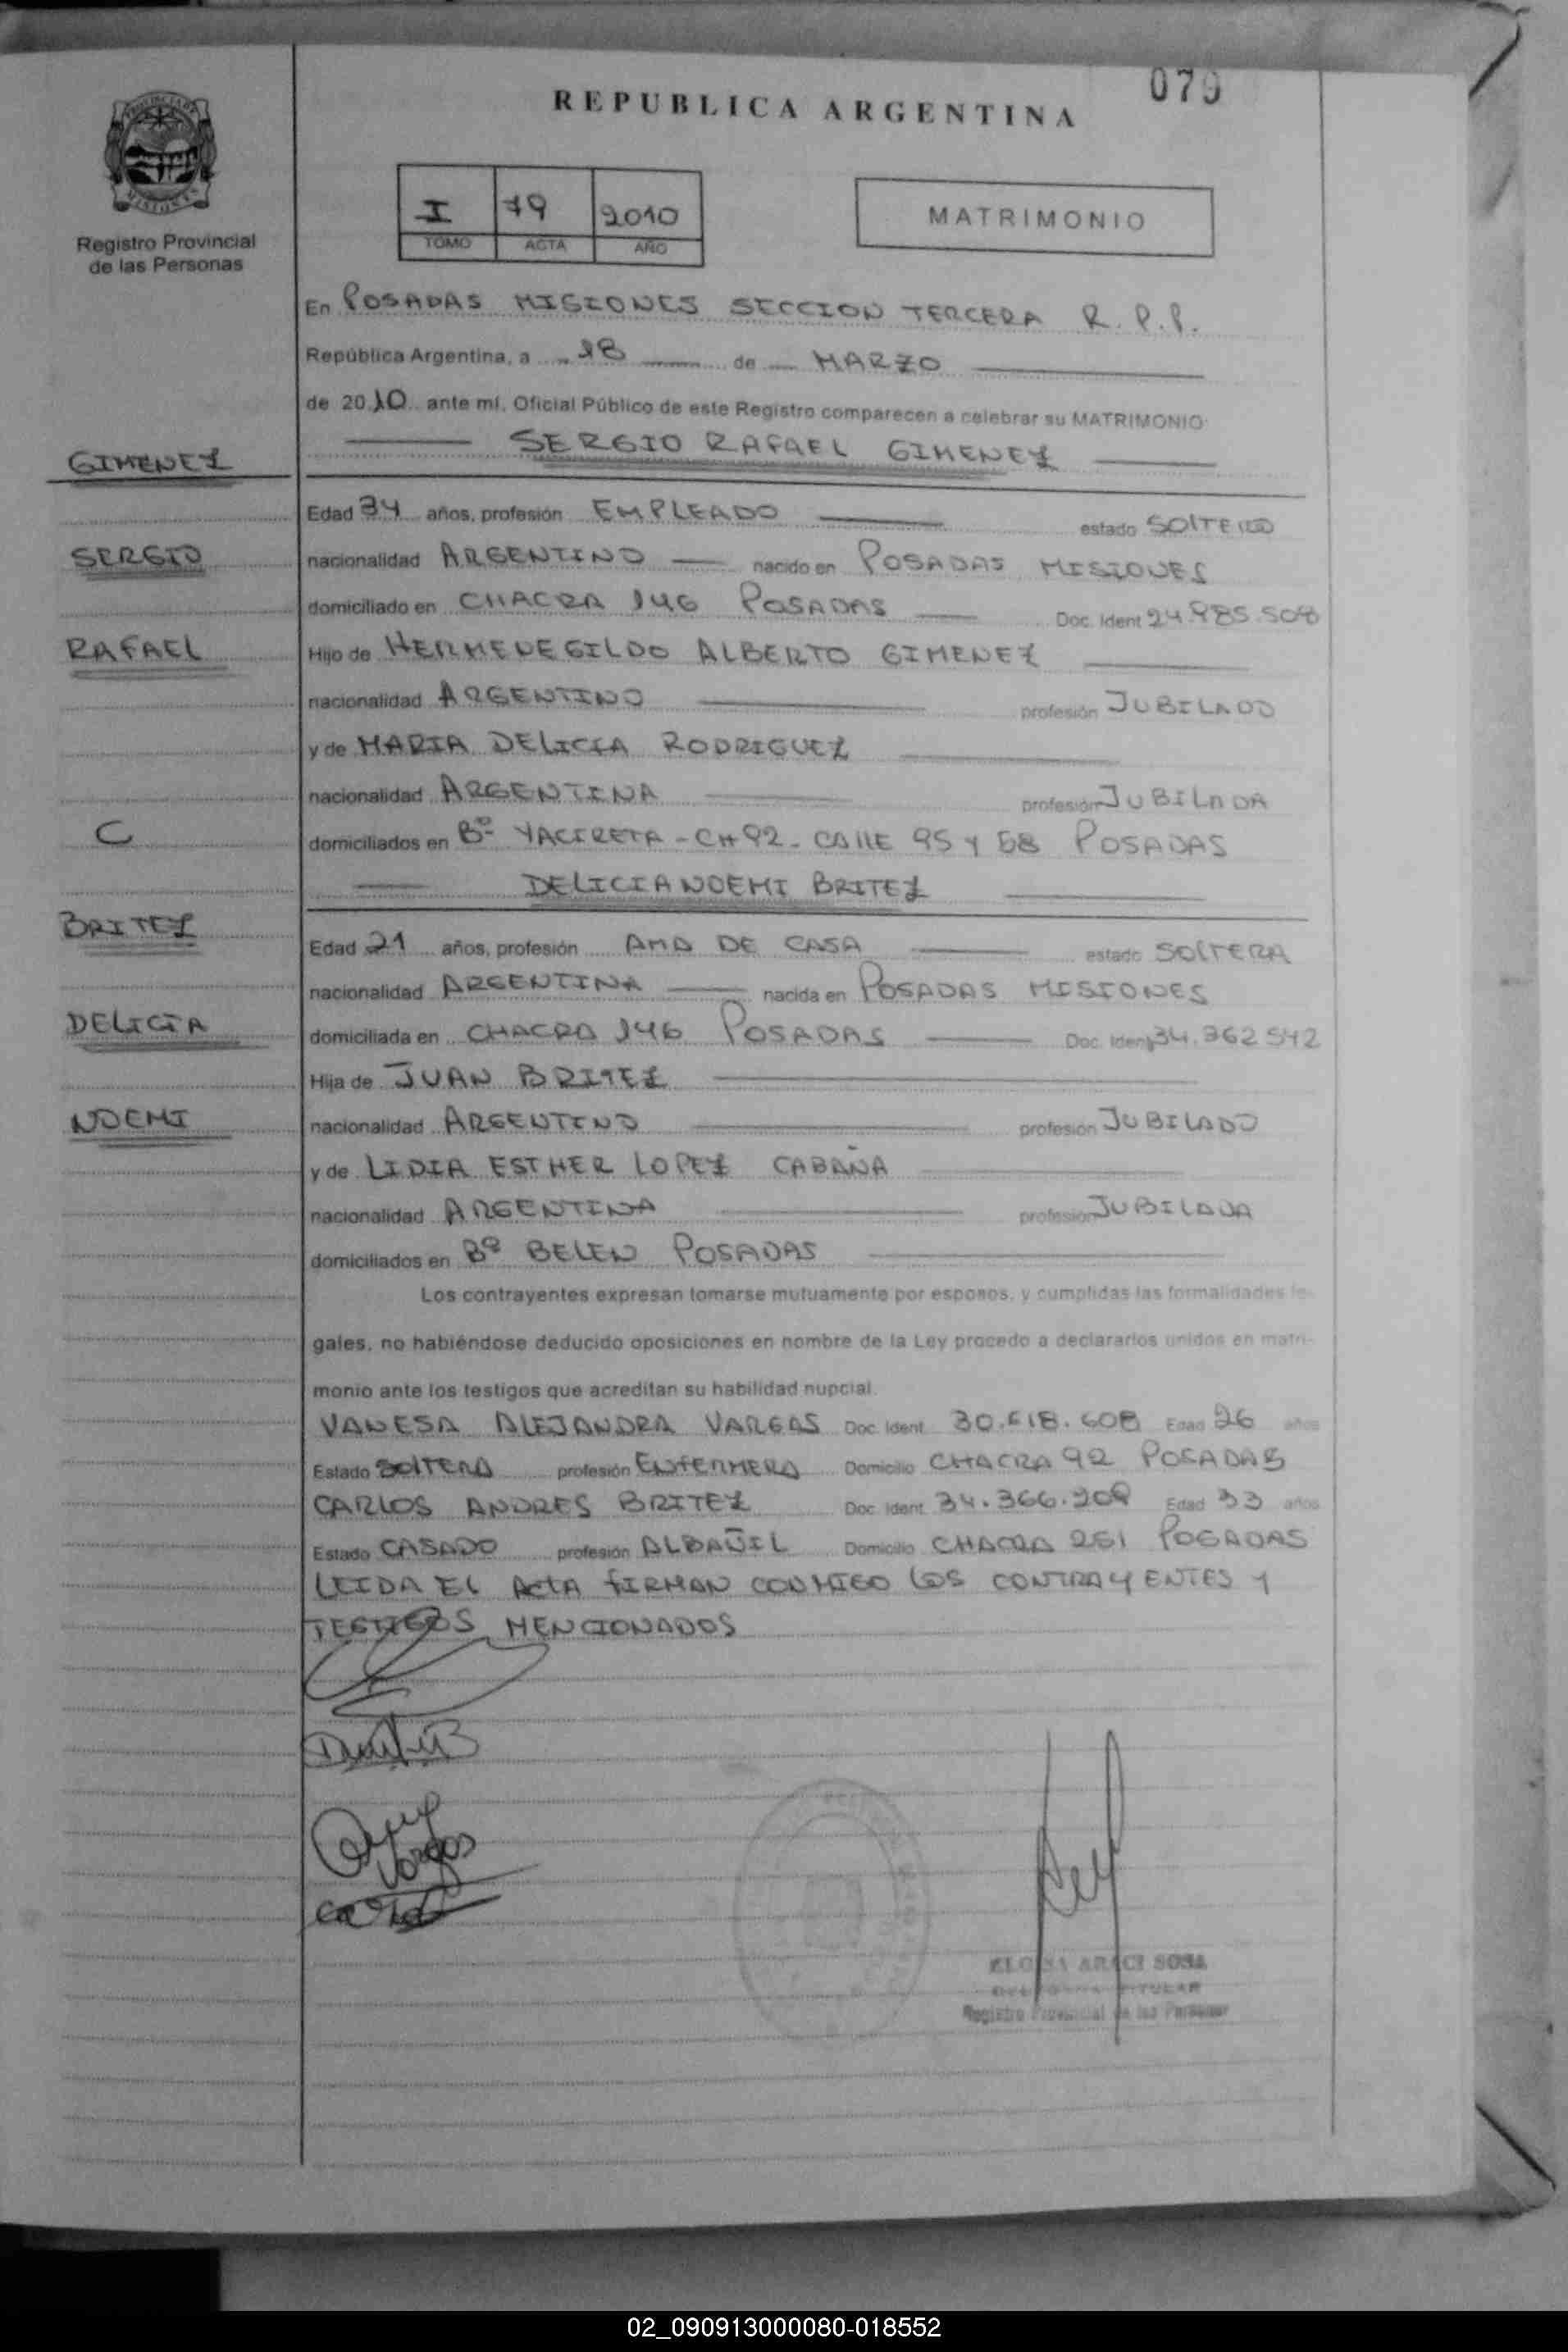 079
REPUBLICA ARGENTINA
PROVINCIA DE MISIONES
Registro Provincial
de las Personas
I 79 2010
TOMO ACTA AÑO
MATRIMONIO
En POSADAS MISIONES SECCION TERCERA R.P.P.
República Argentina, a 18 de MARZO
de 2010 ante mí, Oficial Público de este Registro comparecen a celebrar su MATRIMONIO
GIMENEZ SERGIO RAFAEL GIMENEZ
Edad 34 años, profesión EMPLEADO estado SOLTERO
SERGIO nacionalidad ARGENTINO nacido en POSADAS MISIONES
domiciliado en CHACRA 146 POSADAS Doc. Ident 24.985.508
RAFAEL Hijo de HERMENEGILDO ALBERTO GIMENEZ
nacionalidad ARGENTINO profesión JUBILADO
y de MARIA DELICIA RODRIGUEZ
nacionalidad ARGENTINA profesión JUBILADA
C domiciliados en Bº YACIRETA - CH 92 - CALLE 95 Y 58 POSADAS
DELICIA NOEMI BRITEZ
BRITEZ Edad 21 años, profesión AMA DE CASA estado SOLTERA
nacionalidad ARGENTINA nacida en POSADAS MISIONES
DELICIA domiciliada en CHACRA 146 POSADAS Doc. Ident 34.362 542
Hija de JUAN BRITEZ
NOEMI nacionalidad ARGENTINO profesión JUBILADO
y de LIDIA ESTHER LOPEZ CABAÑA
nacionalidad ARGENTINA profesión JUBILADA
domiciliados en Bº BELEN POSADAS
Los contrayentes expresan tomarse mutuamente por esposos, y cumplidas las formalidades le-
gales, no habiéndose deducido oposiciones en nombre de la Ley procedo a declararlos unidos en matri-
monio ante los testigos que acreditan su habilidad nupcial.
VANESA ALEJANDRA VARGAS Doc. Ident 30.618.608 Edad 26 años
Estado SOLTERA profesión ENFERMERA Domicilio CHACRA 92 POSADAS
CARLOS ANDRES BRITEZ Doc. Ident 34.366.209 Edad 33 años
Estado CASADO profesión ALBAÑIL Domicilio CHACRA 251 POSADAS
LEIDA EL ACTA FIRMAN CONMIGO LOS CONTRAYENTES Y
TESTIGOS MENCIONADOS
Vargas
ARACI SOSA
TITULAR
Registro Provincial de las Personas
02_090913000080-018552